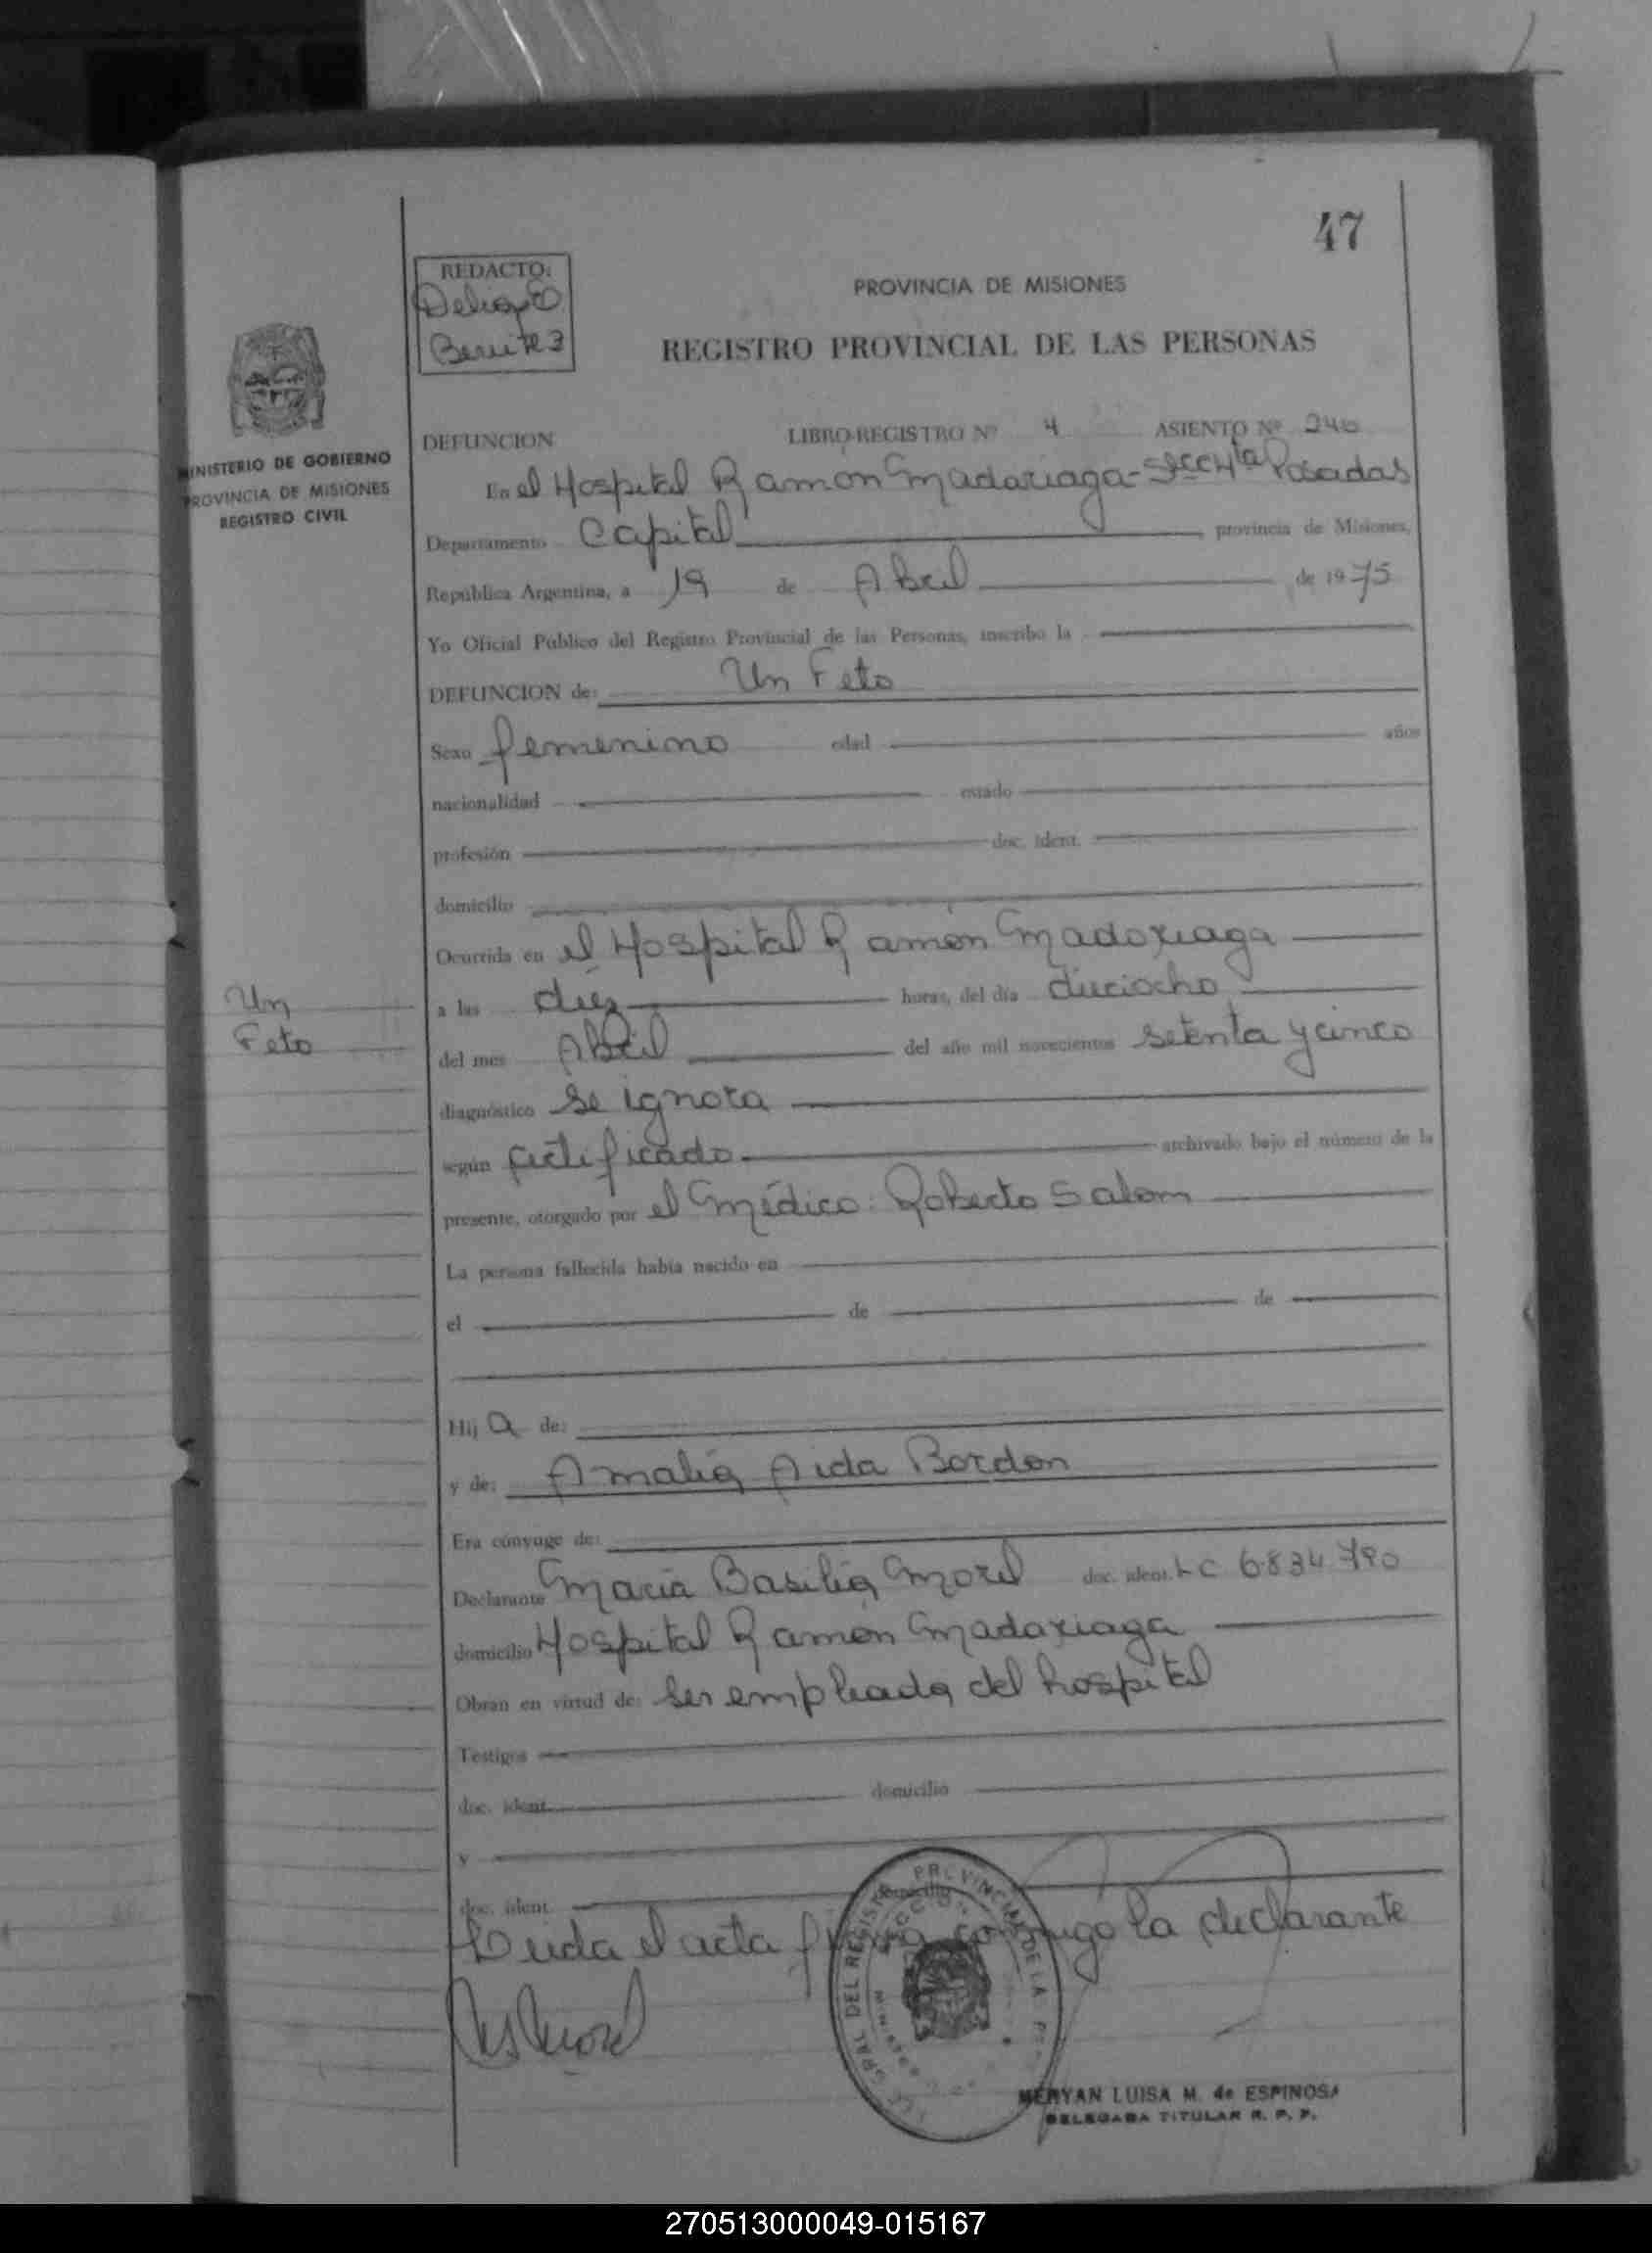 47
REDACTO:
Benitez
PROVINCIA DE MISIONES
REGISTRO PROVINCIAL DE LAS PERSONAS
MINISTERIO DE GOBIERNO
PROVINCIA DE MISIONES
REGISTRO CIVIL
DEFUNCION LIBRO-REGISTRO Nº 4 ASIENTO Nº 240
En el Hospital Ramón Madariaga - Secc 4ta Posadas
Departamento Capital provincia de Misiones,
República Argentina, a 19 de Abril de 1975
Yo Oficial Público del Registro Provincial de las Personas, inscribo la
DEFUNCION de: Un Feto
Sexo femenino edad años
nacionalidad estado
profesión doc. ident.
domicilio
Ocurrida en el Hospital Ramón Madariaga
Un
Feto
a las diez horas, del día dieciocho
del mes Abril del año mil novecientos setenta y cinco
diagnóstico se ignora
según certificado archivado bajo el número de la
presente, otorgado por el Médico: Roberto Salom
La persona fallecida había nacido en
el de de
Hij a de:
y de: Amalia Aida Bordon
Era cónyuge de:
Declarante Maria Basilia Morel doc. ident. LC 6.834.790
domicilio Hospital Ramón Madariaga
Obran en virtud de: ser empleada del hospital
Testigos
doc. ident. domicilio
y
doc. ident. domicilio
Leida el acta firma conmigo la declarante
MERYAN LUISA M. de ESPINOSA
DELEGADA TITULAR R. P. P.
270513000049-015167